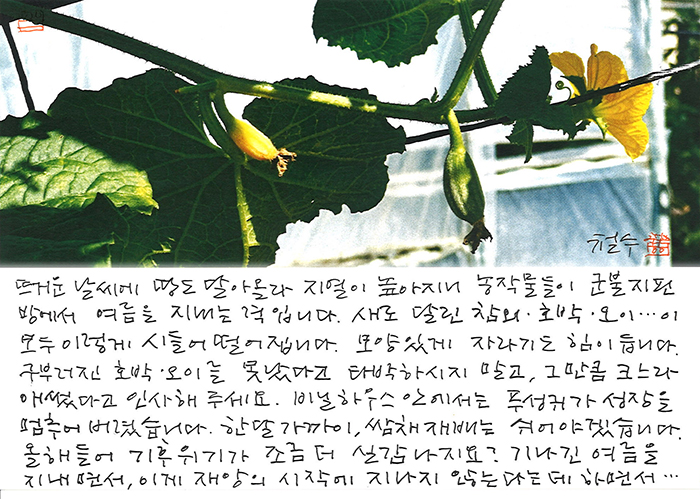 철수
뜨거운 날씨에 땅도 달아올라 지열이 높아지니 농작물들이 군불지핀
방에서 여름을 지내는 격입니다. 새로 달린 참외·호박·오이…이
모두 이렇게 시들어 떨어집니다. 모양있게 자라기도 힘이 듭니다.
구부러진 호박·오이를 못났다고 타박하시지 말고, 그만큼 크느라
애썼다고 인사해 주세요. 비닐하우스 안에서는 푸성귀가 성장을
멈추어 버렸습니다. 한달 가까이, 쌈채 재배는 쉬어야겠습니다.
올해들어 기후위기가 조금 더 실감나지요? 기나긴 여름을
지내면서, 이게 재앙의 시작에 지나지 않는다는데 하면서…